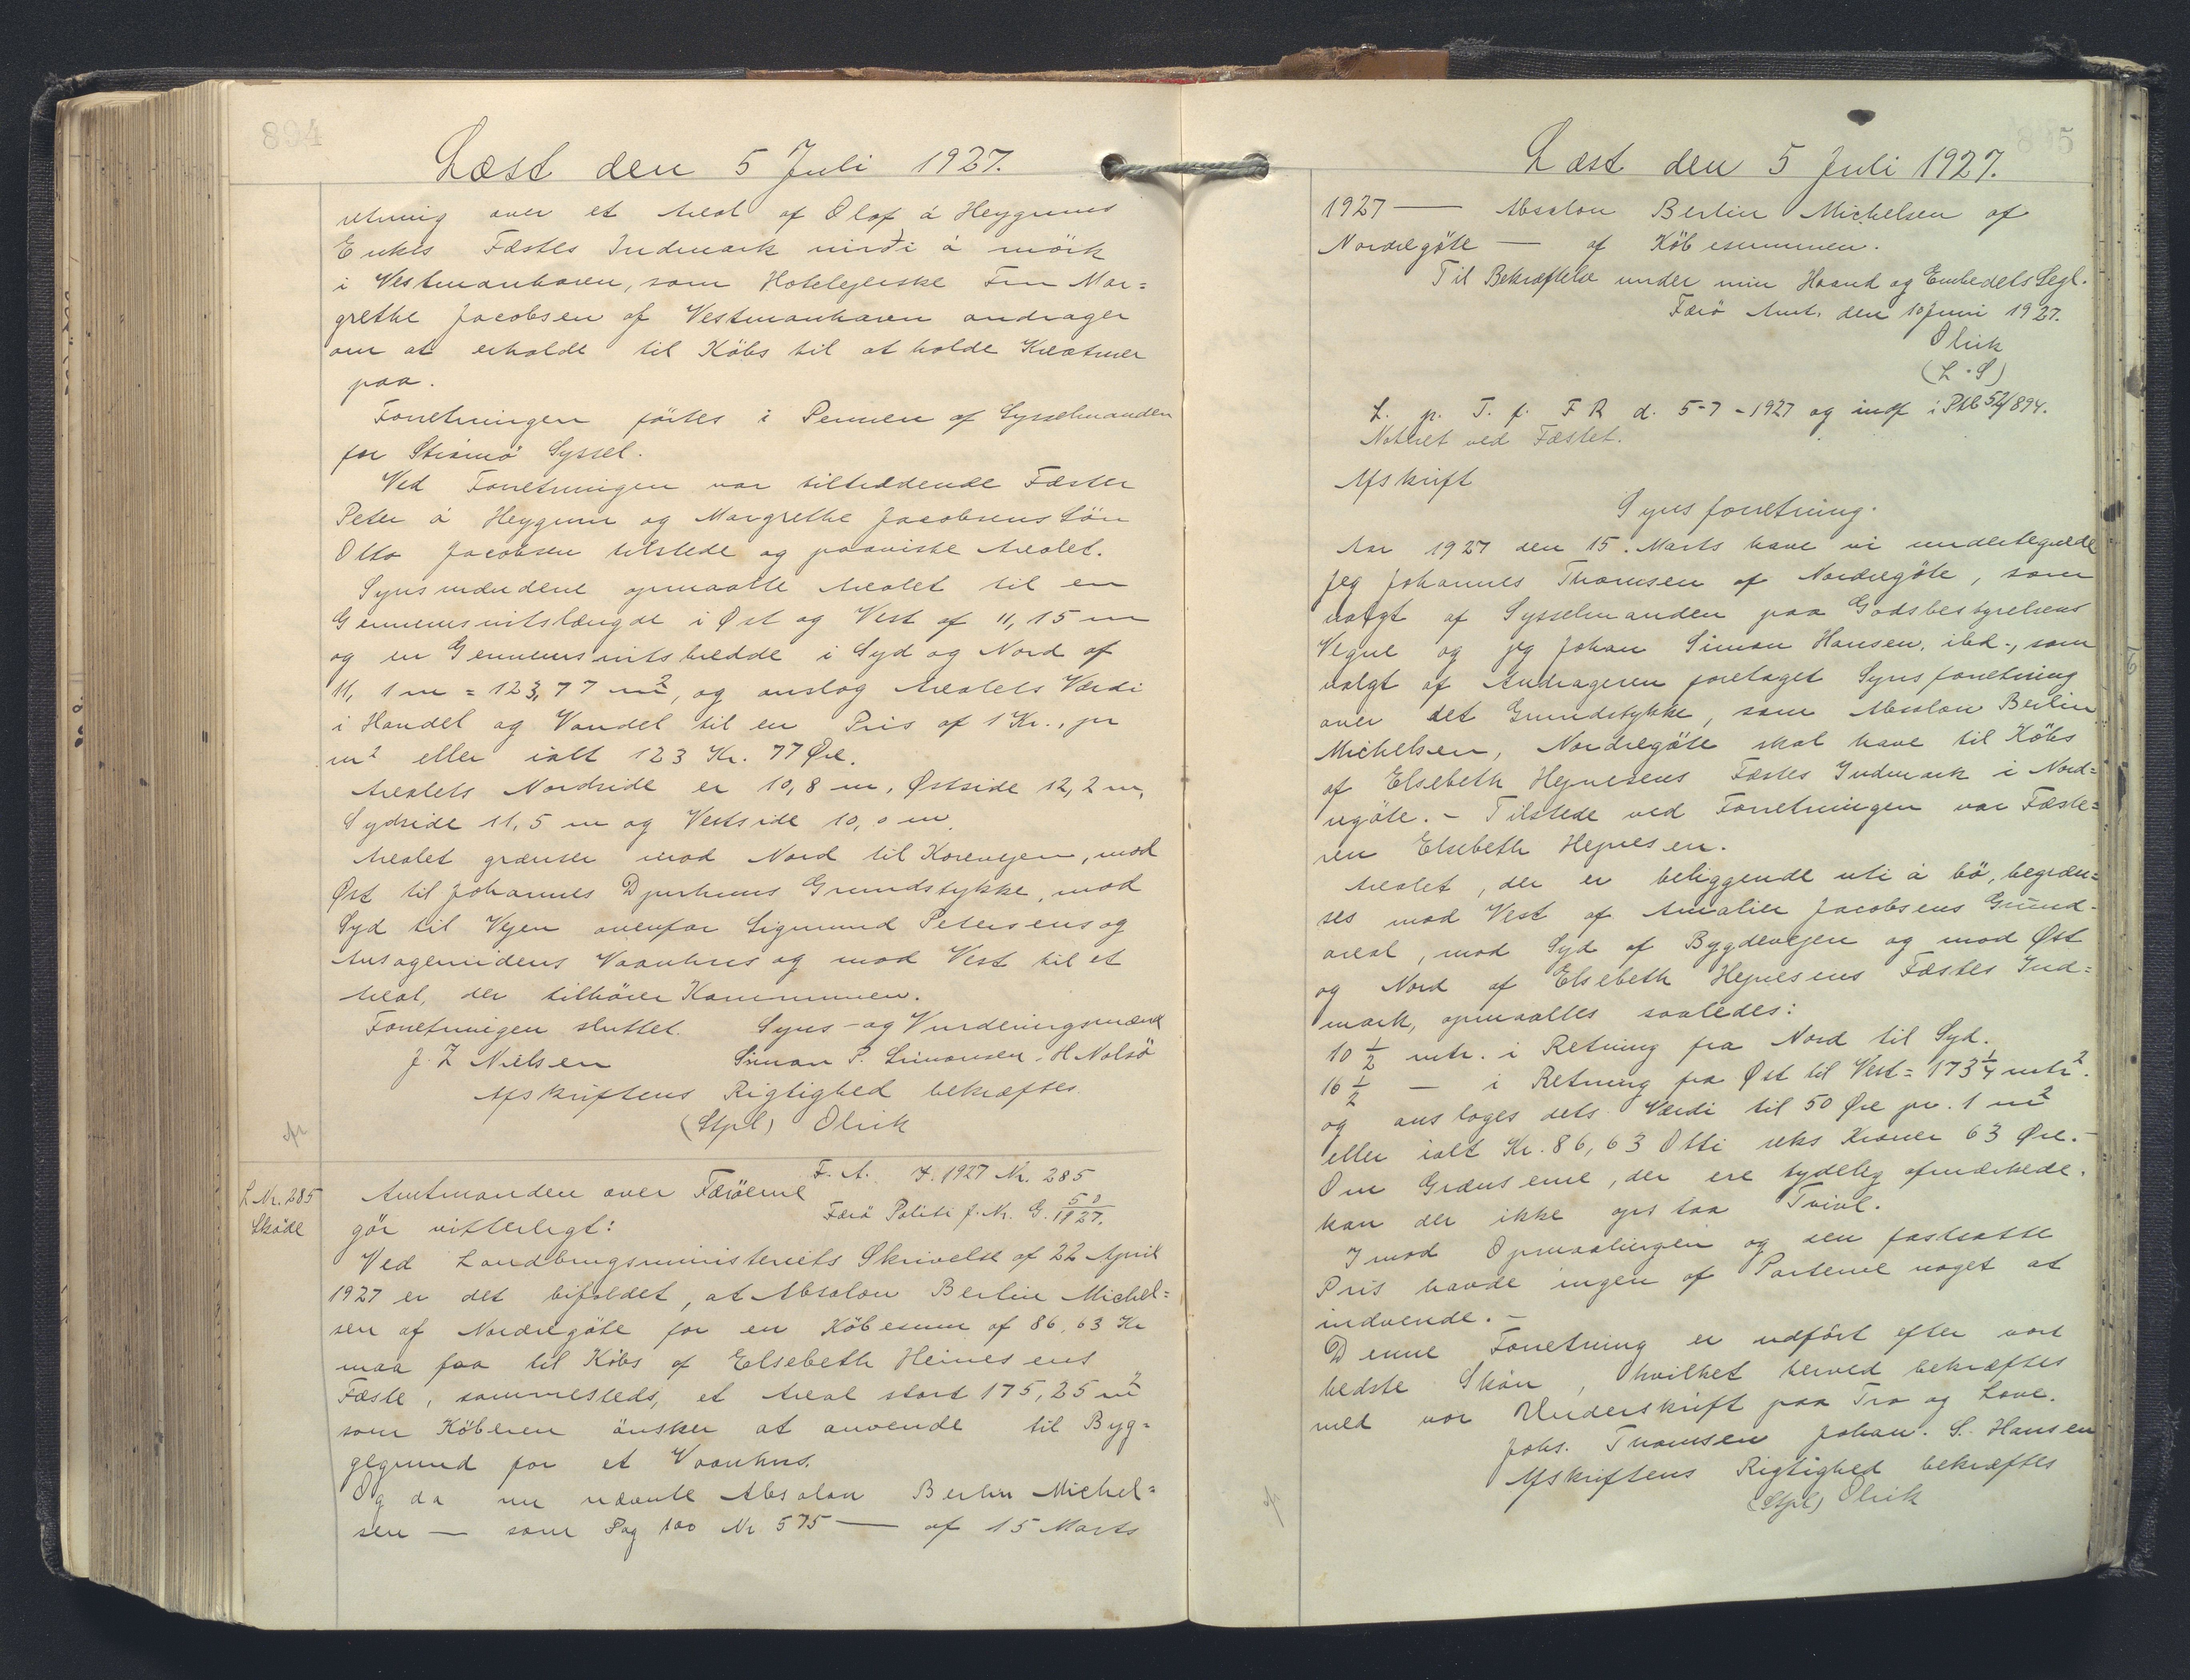 894
Læst den 5 Juli 1927.
retning over et Areal af Olaf á Heygums
Enkes Fæstes Indmark niđri á mörk
i Vestmanhavn, som Hotelejerske Fru Mar=
grethe Jacobsen af Vestmanhavn andrager
om at erholde til Købs til at holde Kreaturer
paa.
Forretningen førtes i Pennen af Sysselmanden
for Strømø Syssel.
Ved Forretningen var tiltrædende Fæster
Peter á Heygum og Margrethe Jacobsens Søn
Otto Jacobsen tilstede og paaviste Arealet.
Synsmændene opmaalte Arealet til en
Gennemsnitslængde i Øst og Vest af 11,15 m
og en Gennemsnitsbredde i Syd og Nord af
11,1 m = 123,77 m², og anslog Arealets Værdi
i Handel og Vandel til en Pris af 1 Kr. pr
m² eller ialt 123 Kr. 77 Øre.
Arealets Nordside er 10,8 m, Østside 12,2 m,
Sydside 11,5 m og Vestside 10,0 m.
Arealet grænser mod Nord til Kørevejen, mod
Øst til Johannes Djurhuus Grundstykke, mod
Syd til Vejen ovenfor Sigmund Petersens og
Ansøgerindens Vaanhus og mod Vest til et
Areal, der tilhører Kommunen.
Forretningen sluttet. Syns- og Vurderingsmænd
J. Z Nielsen Simon P. Simonsen. H Nolsö
Afskriftens Rigtighed bekræftes.
(Stpl) Olrik
L Nr. 285
Skøde
F. A. 1927 Nr. 285
Amtmanden over Færøerne
Færø Politi J. Nr. G. 50/1927.
gör vitterligt:
Ved Landbrugsministeriets Skrivelse af 22 April
1927 er det bifaldet, at Absalon Berlin Michel=
sen af Nordregøte for en Købesum af 86,63 Kr
maa faa til Købs af Elsebeth Heinesens
Fæste, sammesteds, et Areal stort 175,25 m²
som Køberen ønsker at anvende til Byg=
gegrund for et Vaanhus.
Og da nu nævnte Absalon Berlin Michel=
sen — som Pag 100 Nr 575 — af 15 Marts
Læst den 5 Juli 1927.
1927 — Absalon Berlin Michelsen af
Nordregøte — af Købesummen.
Til Bekræftelse under min Haand og Embedets Segl.
Færø Amt, den 10 Juni 1927.
Olrik
(L.S)
L. p. T. f. F R d. 5-7-1927 og indf i Ptb 52/894.
Noteret ved Fæstet.
Afskrift
Synsforretning.
Aar 1927 den 15. Marts have vi undertegnede
jeg Johannes Thomsen af Nordregøte, som
valgt af Sysselmanden paa Godsbestyrelsens
Vegne og jeg Johan Simon Hansen, ibd., som
valgt af Andrageren foretaget Synsforretning
over det Grundstykke, som Absalon Berlin
Michelsen, Nordregøte skal have til Købs
af Elsebeth Hejnesens Fæstes Indmark i Nord=
regøte. - Tilstede ved Forretningen var Fæste=
ren Elsebeth Hejnesen.
Arealet, der er beliggende uti á bø, begræn=
ses mod Vest af Amalier Jacobsens Grund-
areal, mod Syd af Bygdevejen og mod Øst
og Nord af Elsebeth Hejnesens Fæstes Ind=
mark, opmaaltes saaledes:
10 1/2 mtr. i Retning fra Nord til Syd.
16 1/2 — i Retning fra Øst til Vest = 173 1/4 mtr².
og ansloges dets Værdi til 50 Øre pr. 1 m²
eller ialt Kr. 86,63 Otti seks Kroner 63 Øre.-
Om Grænserne, der ere tydelig afmærkede.
kan der ikke opstaa Tvivl.
Imod Opmaalingen og den fastsatte
Pris havde ingen af Parterne noget at
indvende. -
Denne Forretning er udført efter vort
bedste Skøn, hvilket herved bekræftes
med vor Underskrift paa Tro og Love.
Johs. Thomsen Johan. S. Hansen
Afskriftens Rigtighed bekræftes
(Stpl) Olrik